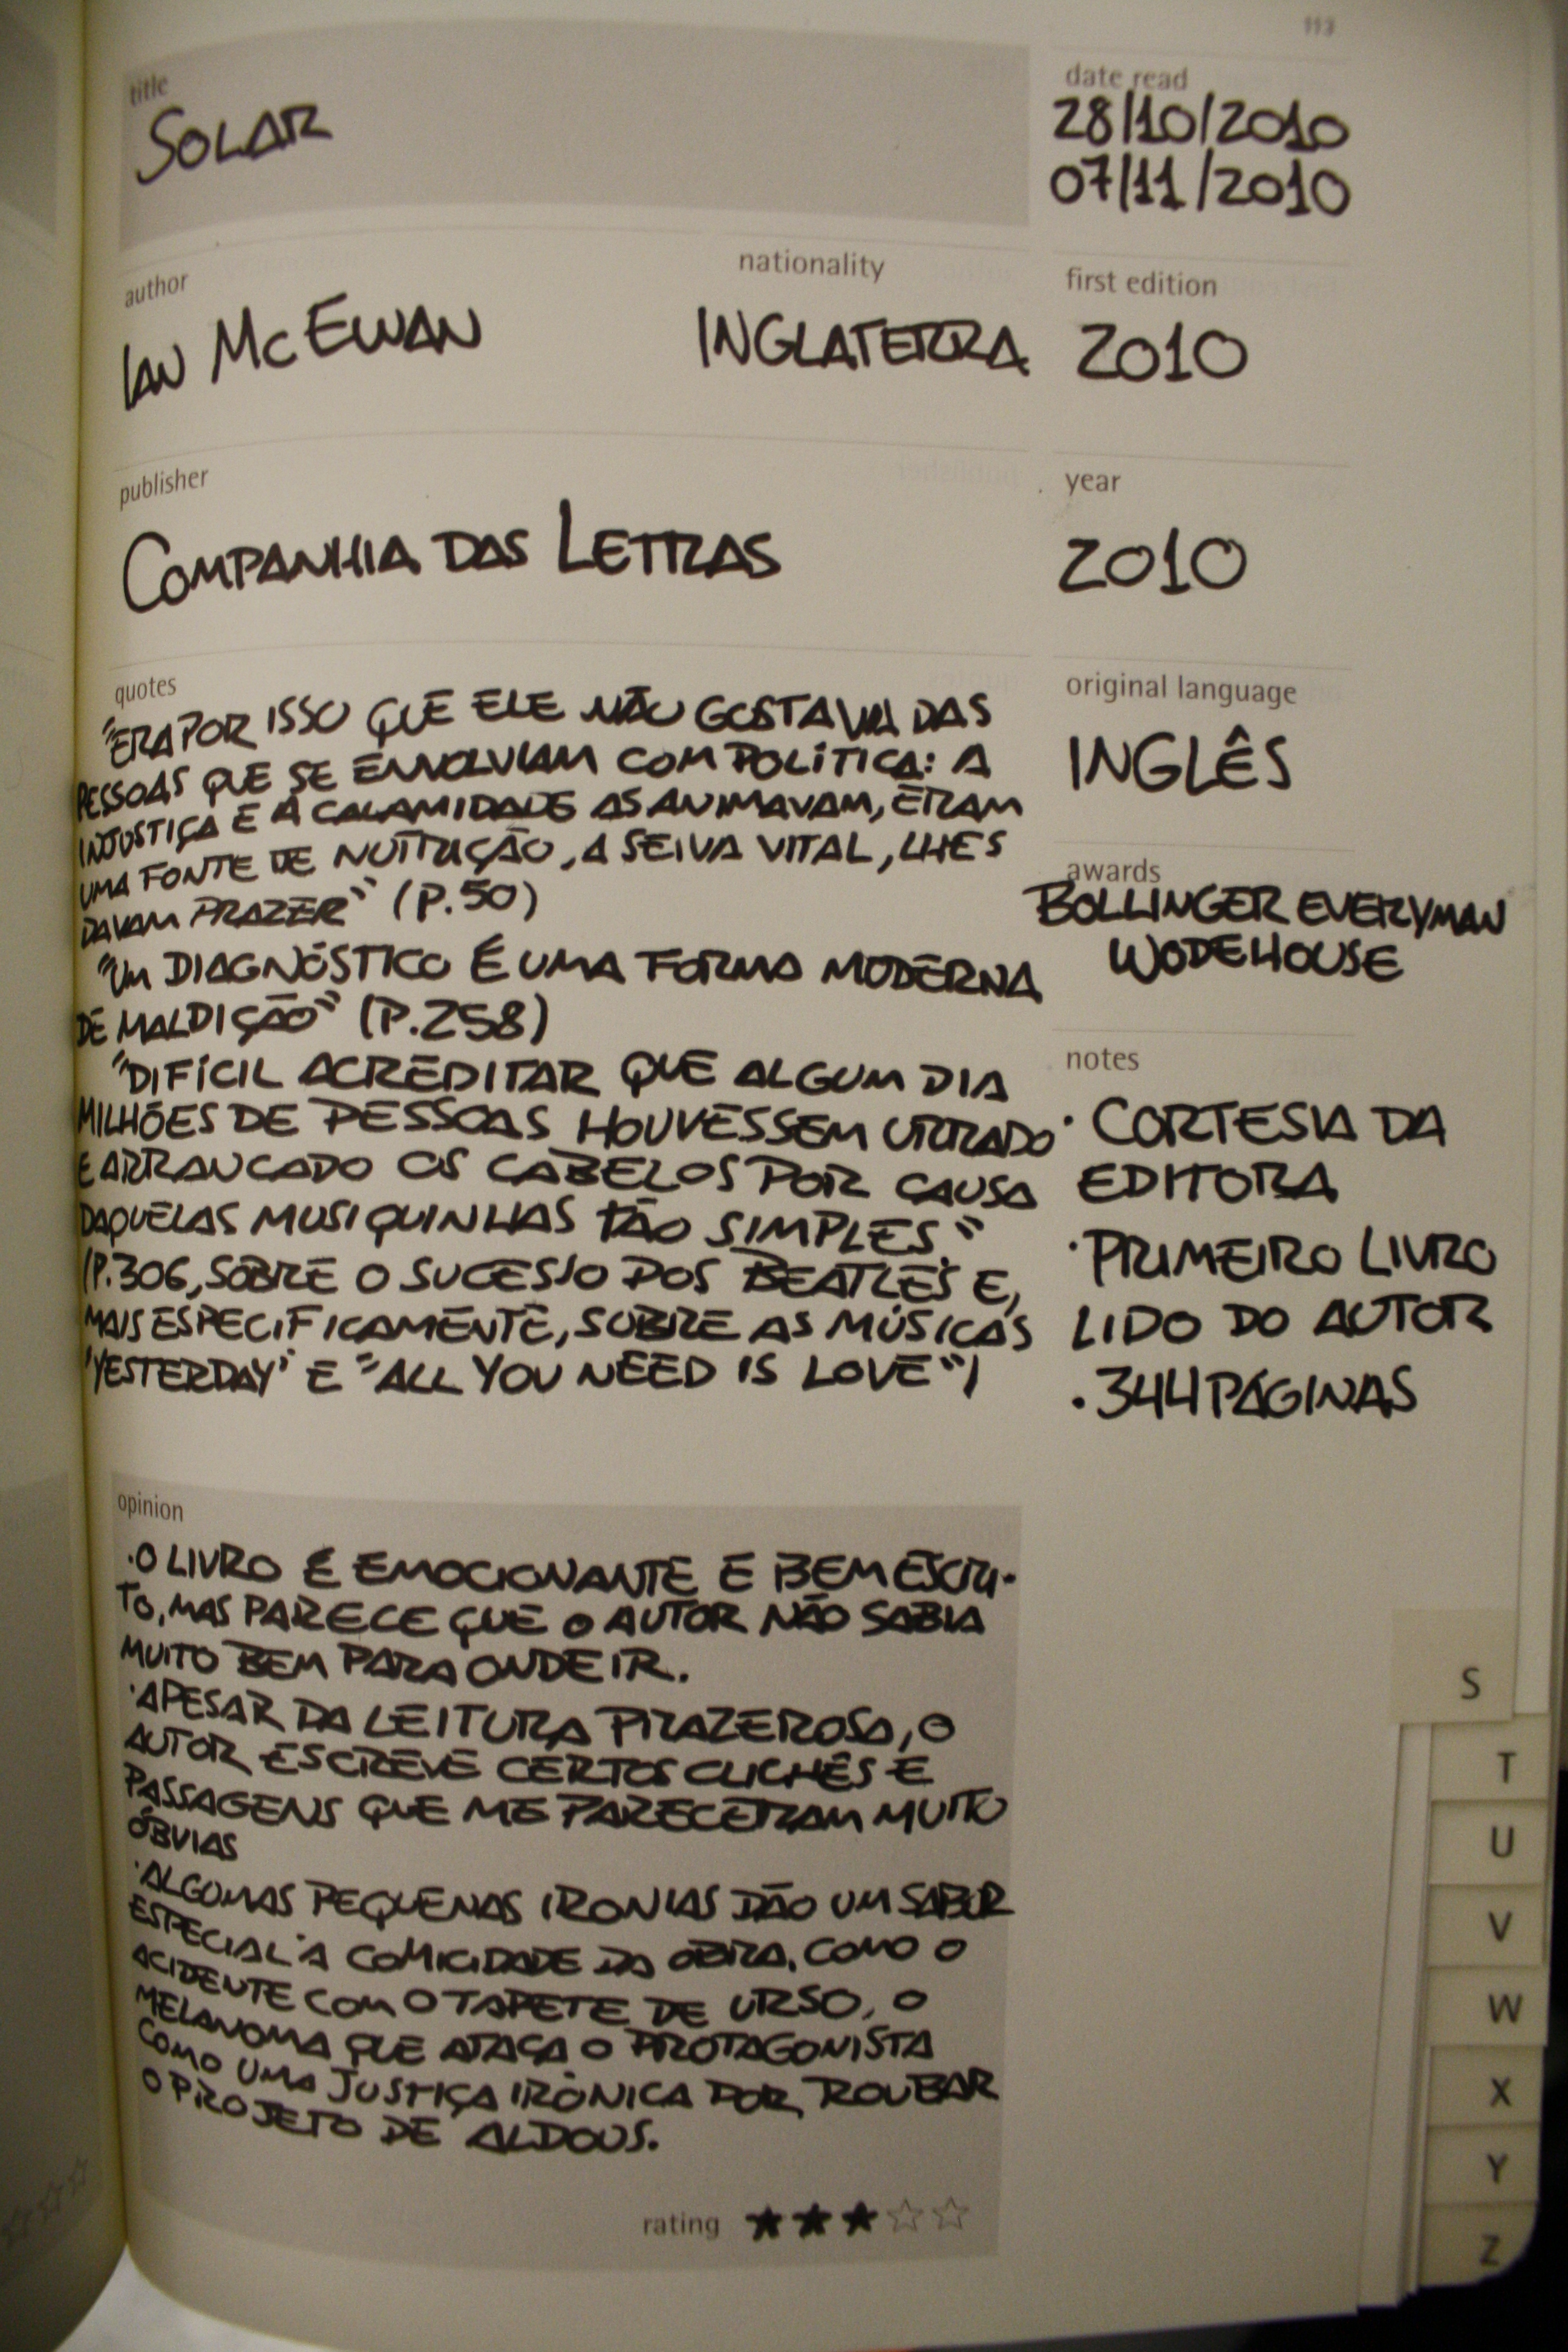 113
title
SOLAR
date read
28/10/2010
07/11/2010
author
IAN MCEWAN
nationality
INGLATERRA
first edition
2010
publisher
COMPANHIA DAS LETRAS
year
2010
quotes
"ERA POR ISSO QUE ELE NÃO GOSTAVA DAS
PESSOAS QUE SE ENVOLVIAM COM POLÍTICA: A
INJUSTIÇA E A CALAMIDADE AS ANIMAVAM, ERAM
UMA FONTE DE NUTRIÇÃO, A SEIVA VITAL, LHES
DAVAM PRAZER" (P.50)
"UM DIAGNÓSTICO É UMA FORMA MODERNA
DE MALDIÇÃO" (P.258)
"DIFÍCIL ACREDITAR QUE ALGUM DIA
MILHÕES DE PESSOAS HOUVESSEM URRADO
E ARRANCADO OS CABELOS POR CAUSA
DAQUELAS MUSIQUINHAS TÃO SIMPLES."
(P.306, SOBRE O SUCESSO DOS BEATLES E,
MAIS ESPECIFICAMENTE, SOBRE AS MÚSICAS
"YESTERDAY" E "ALL YOU NEED IS LOVE")
original language
INGLÊS
awards
BOLLINGER EVERYMAN
WODEHOUSE
notes
· CORTESIA DA
EDITORA
· PRIMEIRO LIVRO
LIDO DO AUTOR
· 344 PÁGINAS
opinion
· O LIVRO É EMOCIONANTE E BEM ESCRI-
TO, MAS PARECE QUE O AUTOR NÃO SABIA
MUITO BEM PARA ONDE IR.
· APESAR DA LEITURA PRAZEROSA, O
AUTOR ESCREVE CERTOS CLICHÊS E
PASSAGENS QUE ME PARECERAM MUITO
ÓBVIAS
· ALGUMAS PEQUENAS IRONIAS DÃO UM SABOR
ESPECIAL À COMICIDADE DA OBRA, COMO O
ACIDENTE COM O TAPETE DE URSO, O
MELANOMA QUE ATACA O PROTAGONISTA
COMO UMA JUSTIÇA IRÔNICA POR ROUBAR
O PROJETO DE ALDOUS.
rating
S
T
U
V
W
X
Y
Z